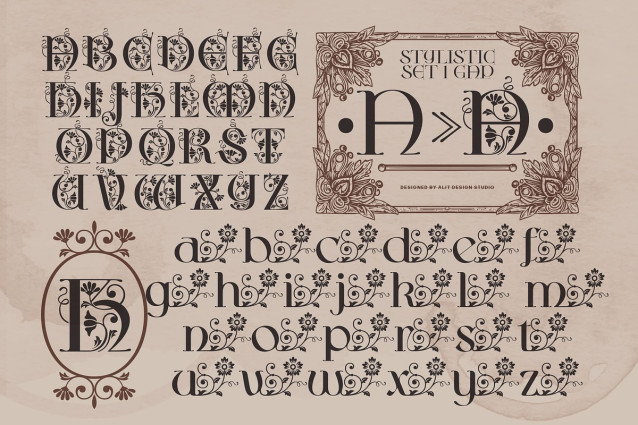 ABCDEFG
HIJKLMN
OPQRST
UVWXYZ
STYLISTIC
SET 1 CAP
A » A
DESIGNED BY ALIT DESIGN STUDIO
a b c d e f
g h i j k l m
n o p r s t
u v w x y z